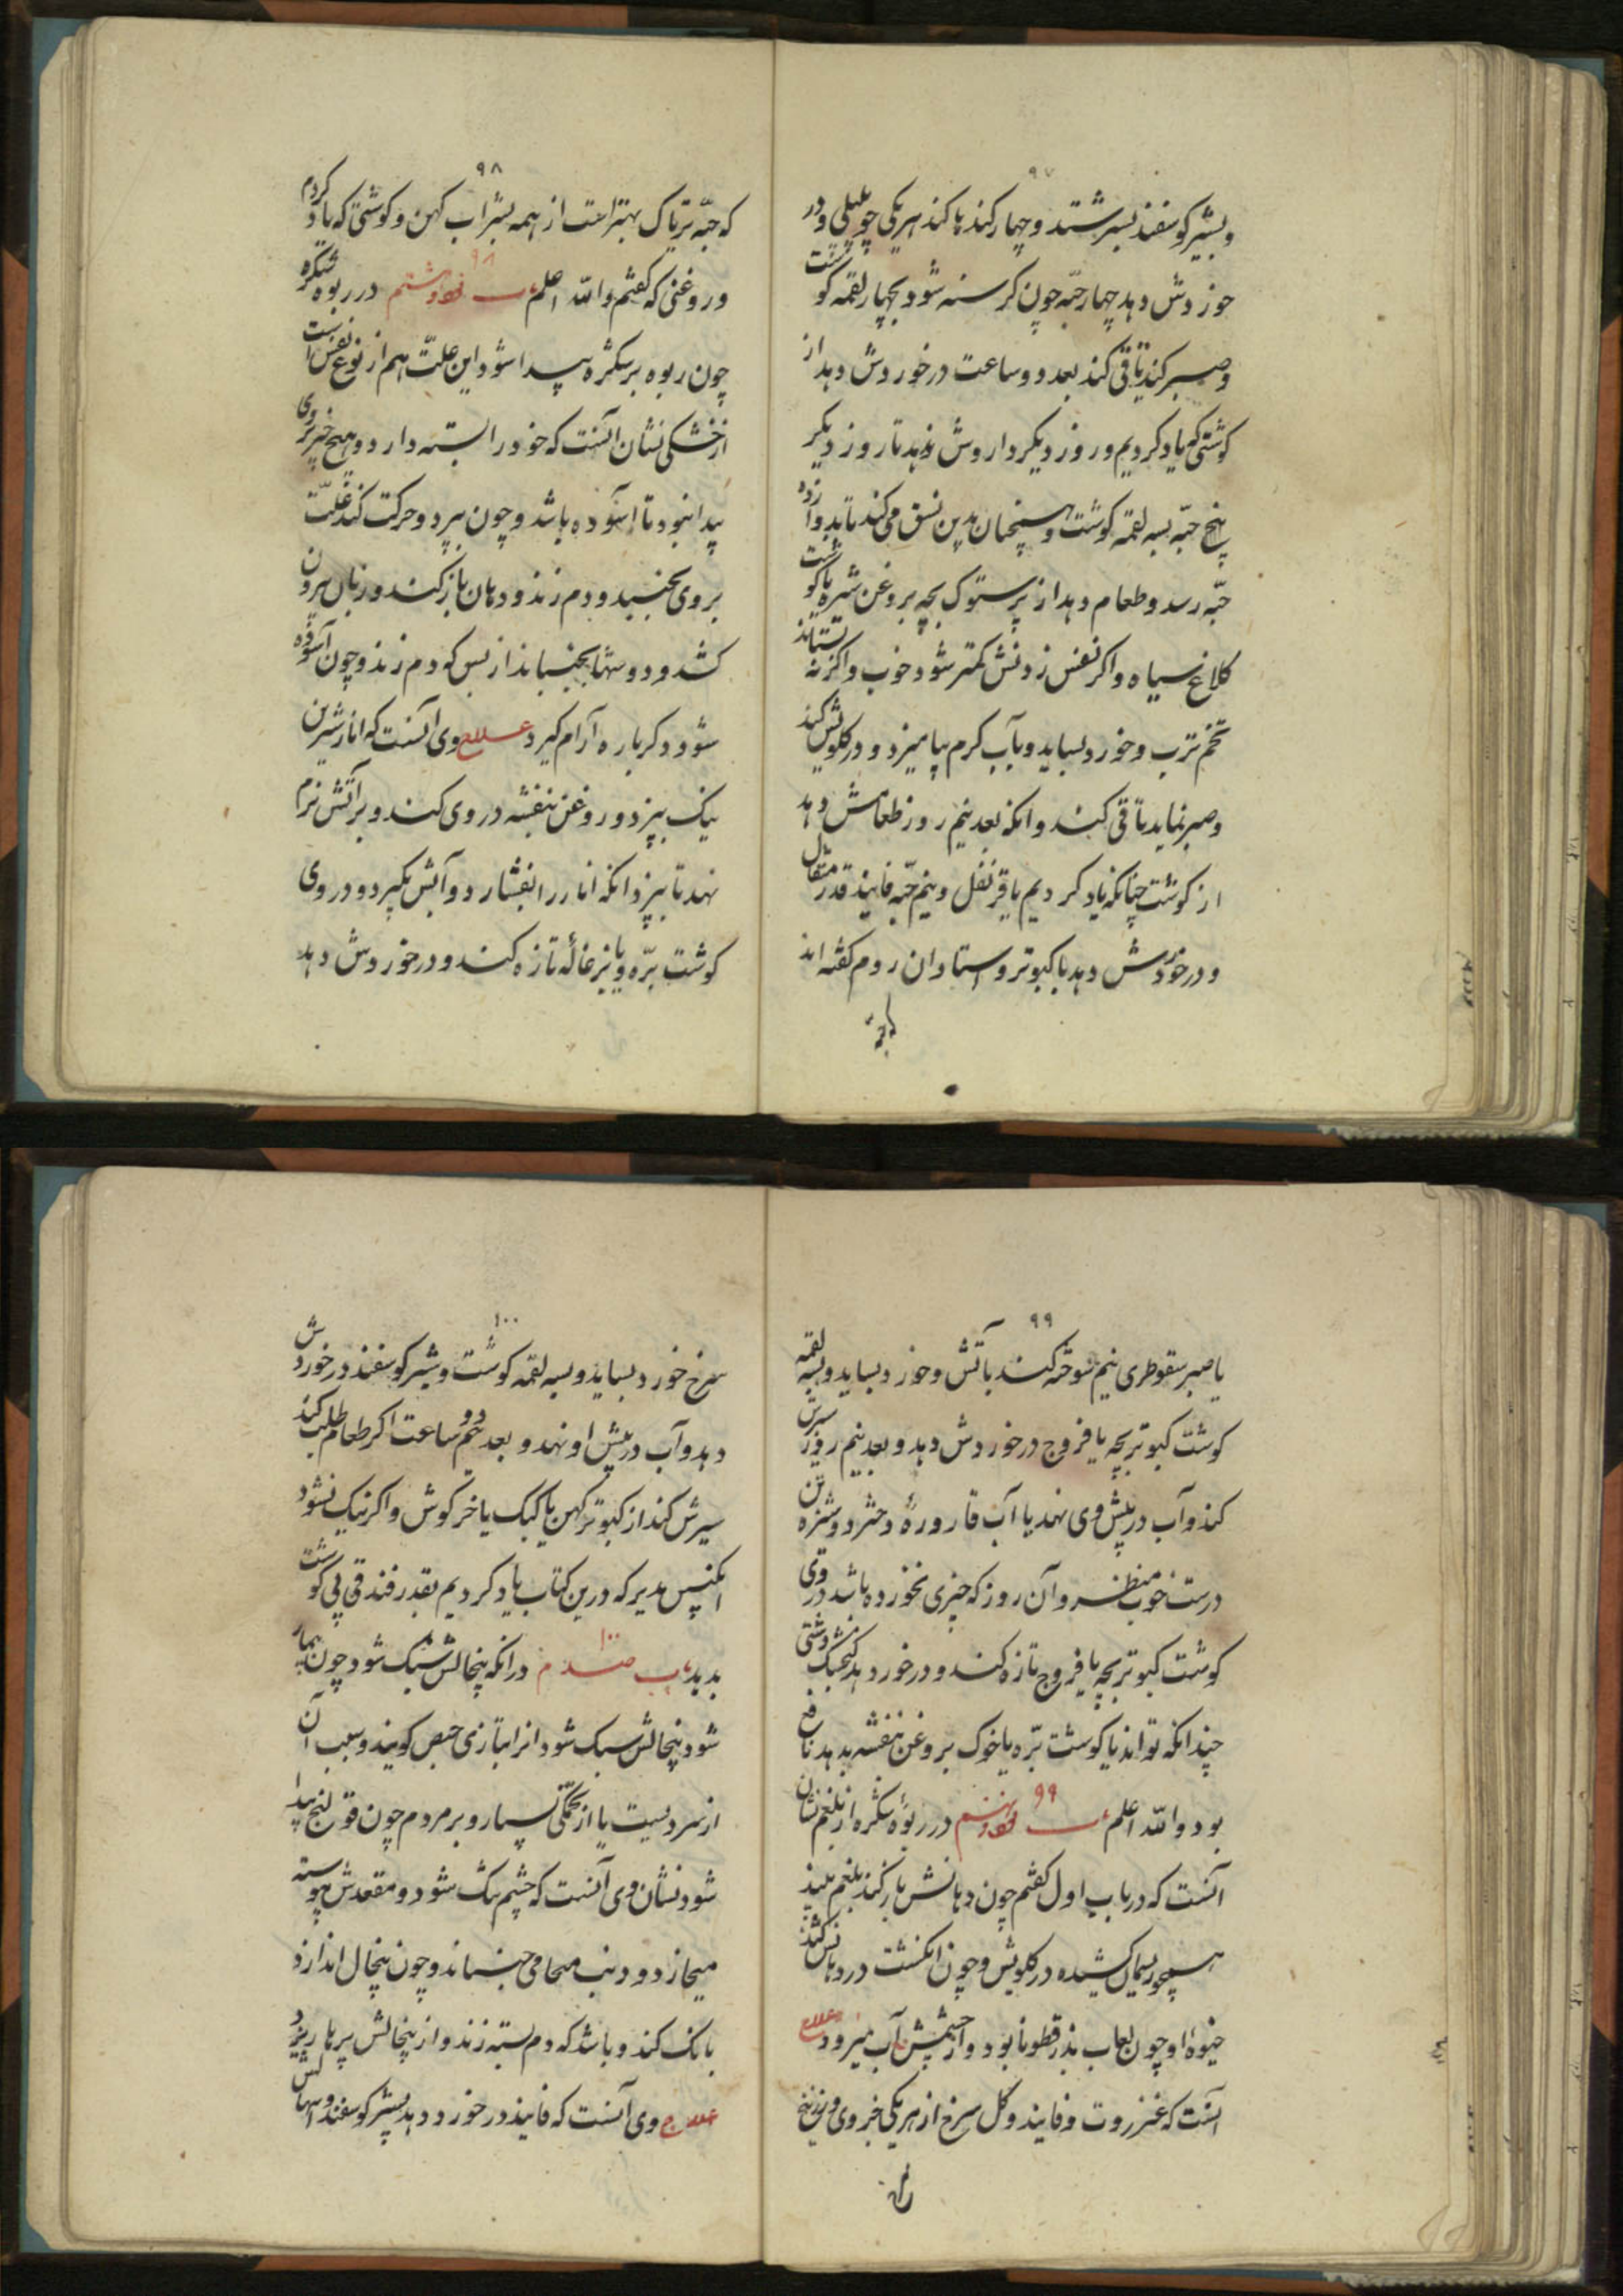 ۹۷
وبشیر کوسفند بسرشتد و چهار کند یا کند هر یکی چو بلبلی ودر
خوردش دهد چهار حبّه چون کرسنه شود بچهار لقمه کوشت
وصبر کند تا قی کند بعد دو ساعت در خوردش دهد از
کوشتی که یاد کردیم و روز دیکر داروش ندهد تا روز دیکر
پنج حبّه بسه لقمه کوشت وهمچنان بدین نسق می کند تا بدوازده
حبّه رسد وطعام دهد از پرستوک بچه بروغن شیره یا کوشت
کلاغ سیاه واکر نفس زدنش کمتر شود خوب واکر نه بستاند
تخم ترب و خورد بساید و بآب کرم بیامیزد و در کلویش کند
وصبر نماید تا قی کند وانکه بعد نیم روز طعامش دهد
از کوشت چنانکه یاد کردیم یا قرنفل ونیم حبّه فانید قدر مثقال
ودر خوردش دهد با کبوتر واستادان روم کفته اند
که حبّه
۹۸
که حبّه تریاک بهتر است از همه بشراب کهن و کوشتی که یاد کردم
وروغنی که کفتم والله اعلم باب نود وهشتم ۹۸ در ربوه شکره
چون ربوه بر شکره پیدا شود این علّت هم از نوع نفس است
از خشکی نشان آنست که خود را بسته دارد وهیچ چیز بروی
پیدا نبود تا آسوده باشد وچون بپرد وحرکت کند علّت
بروی بجنبد و دم زند و دهان باز کند وزبان بیرون
کشد و دوشها بجنباند از بس که دم زند وچون آسوده
شود دکر باره آرام کیرد علاج وی آنست که انار شیرین
نیک بپزد و روغن بنفشه در وی کند و بر آتش نرم
نهد تا بپزد انکه انار را بفشارد و آبش بکیرد و در وی
کوشت برّه ویا بزغالهٔ تازه کند ودر خوردش دهد
۹۹
یا صبر سقوطری نیم سوخته کند بآتش وخورد بساید وبسه لقمه
کوشت کبوتر بچه یا فروج در خوردش دهد و بعد نیم روز سیرش
کند وآب در پیش وی نهد یا آب قارورهٔ دختر دوشیزه تن
درست خوب منظر و آن روز که چیزی نخورده باشد در وی
کوشت کبوتر بچه یا فروج تازه کند و در خورد دهد کنجشک دشتی
چندانکه تواند یا کوشت برّه یا خوک بروغن بنفشه بدهد نافع
بود والله اعلم باب نود ونهم ۹۹ در ربوهٔ شکره از بلغم نشان
آنست که در باب اول کفتم چون دهانش باز کند بلغم بیند
همچو ریسمان کشیده در کلویش وچون انکشت در دهانش کند
خیوه او چون لعاب بذر قطونا بود و از چشمش آب میرود علاج
آنست که عنزروت وفانید وکل سرخ از هر یکی جزوی وزرنیخ
۱۰۰
سرخ خورد بساید و بسه لقمه کوشت وشیر کوسفند در خوردش
دهد وآب در پیش او نهد و بعد دو ساعت اکر طعام طلب کند
سیرش کند از کبوتر کهن یا کبک یا خرکوش واکر نیک نشود
مدبر که درین کتاب یاد کردیم بقدر فندقی بی کوشت
بدهد باب صدم ۱۰۰ در انکه پنخالش سبک شود چون بیمار
شود پنخالش سبک شود انرا بتازی حبص کویند وسبب آن
از سردیست یا از تخمکی بسیار و بر مردم چون قولنج پیدا
شود نشان وی آنست که چشم تنک شود و مقعدش پیوسته
میخازد و دنب می جنباند وچون پنخال اندازد
بانک کند و باشد که دم بسته زند و از پنخالش پرها ریزد
علاج وی آنست که فانید در خورد دهد بشیر کوسفند